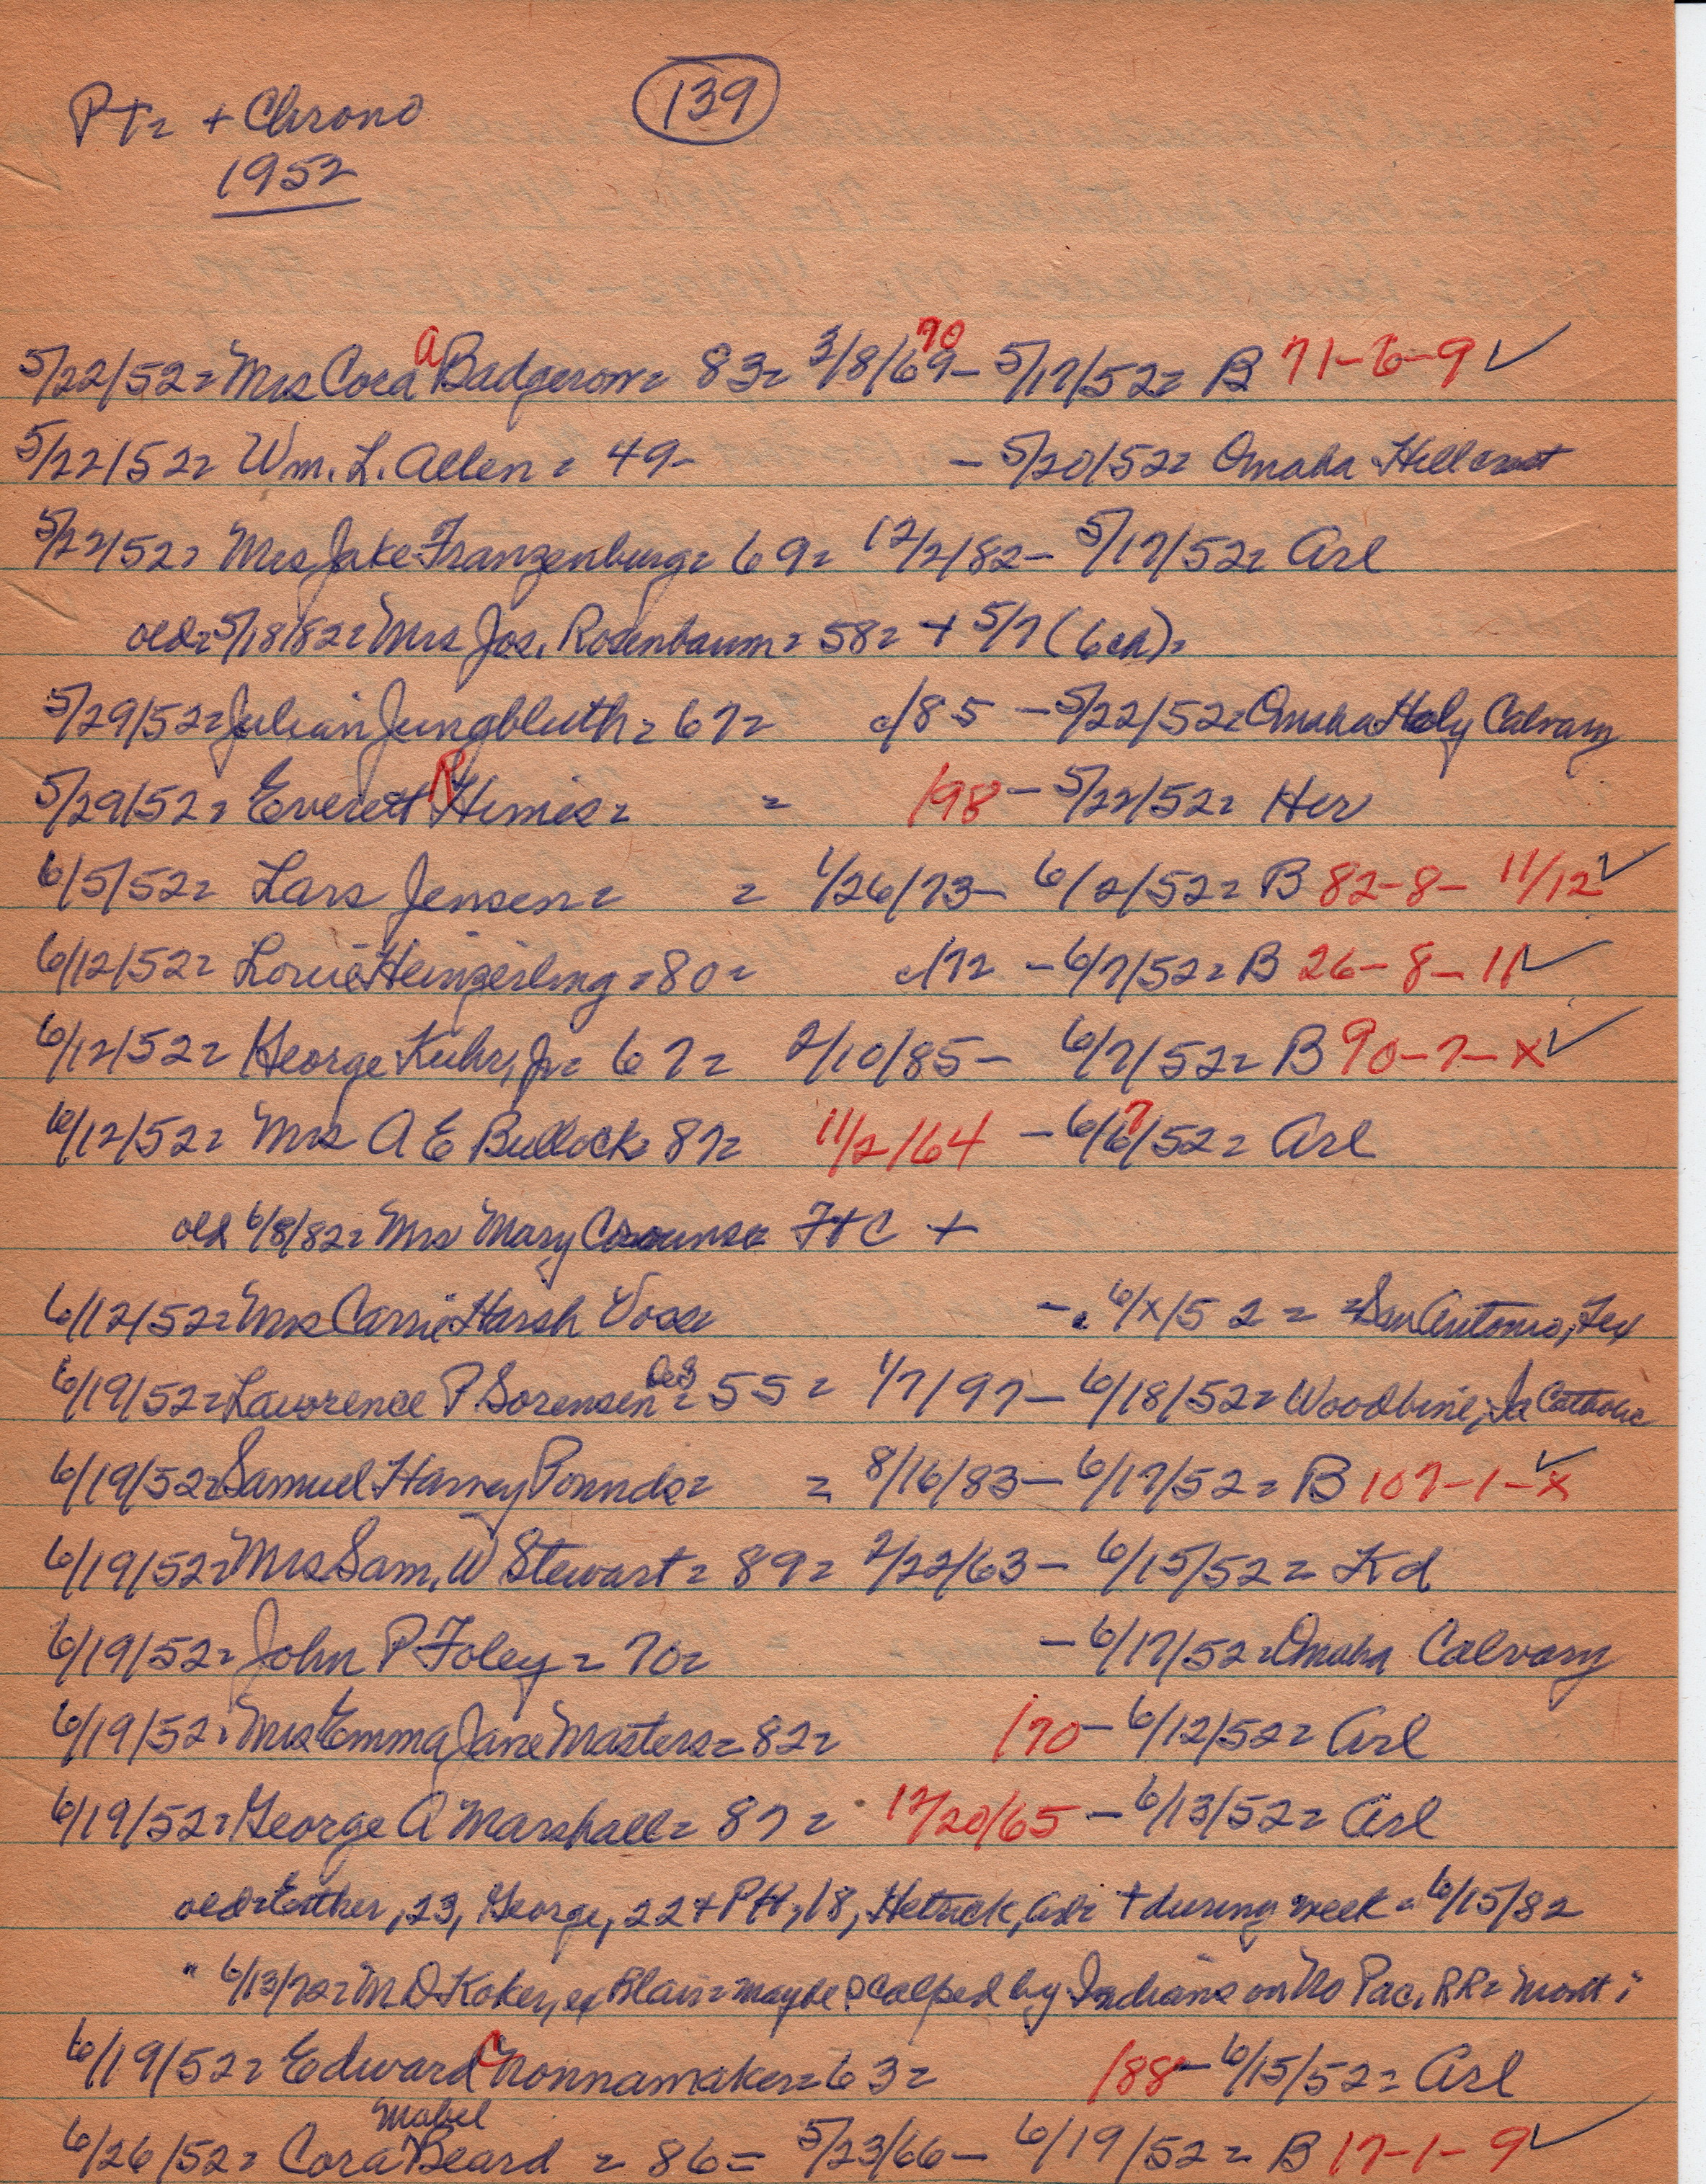 PT= + Chrono 139
1952
5/22/52= Mrs Cora A Badgerow= 83= 3/8/69 70 - 5/17/52= B 71-6-9 ✓
5/22/52= Wm. L. Allen= 49- - 5/20/52= Omaha Hillcrest
5/22/52= Mrs Jake Franzenburg= 69= 12/2/82- 5/17/52= Arl
old= 5/18/82= Mrs Jos. Rosenbaum= 58= + 5/7 (6ch)=
5/29/52= Julian Jungbluth= 67= c/85 - 5/22/52= Omaha Holy Calvary
5/29/52= Everett R Himes= = /98 - 5/22/52= Her
6/5/52= Lars Jensen= = 1/26/73- 6/2/52= B 82-8- 11/12 ✓
6/12/52= Louie Heinzerling= 80= c/72 - 6/7/52= B 26-8-11 ✓
6/12/52= George Kuhr, Jr= 67= 2/10/85- 6/7/52= B 90-7-x ✓
6/12/52= Mrs A E Bullock= 87= 11/2/64 - 6/6 7/52= Arl
old 6/8/82= Mrs Mary F+C +
6/12/52= Mrs Carrie Harsh Vose - 6/x/52= =San Antonio, Tex
6/19/52= Lawrence P Sorensen = 55= 1/7/97- 6/18/52= Woodbine, Ia Catholic
6/19/52= Samuel Harvey Pounds= = 8/16/83- 6/17/52= B 107-1-x ✓
6/19/52= Mrs Sam. W Stewart= 89= 2/22/63- 6/15/52= Kd
6/19/52= John P Foley= 70= - 6/17/52= Omaha Calvary
6/19/52= Mrs Emma Jane Masters= 82= /70- 6/12/52= Arl
6/19/52= George A Marshall= 87= 12/20/65 - 6/13/52= Arl
old= Esther, 23, George, 22 + PH, 18, Hetrick, + during week = 6/15/82
" 6/13/72= M D Koker, ex Blair= maybe scalped by Indians on No Pac. RR= Mont;
6/19/52= Edward C Nonnamaker= 63= /88- 6/15/52= Arl
6/26/52= Cora Mabel Beard = 86= 5/23/66- 6/19/52= B 17-1-9 ✓